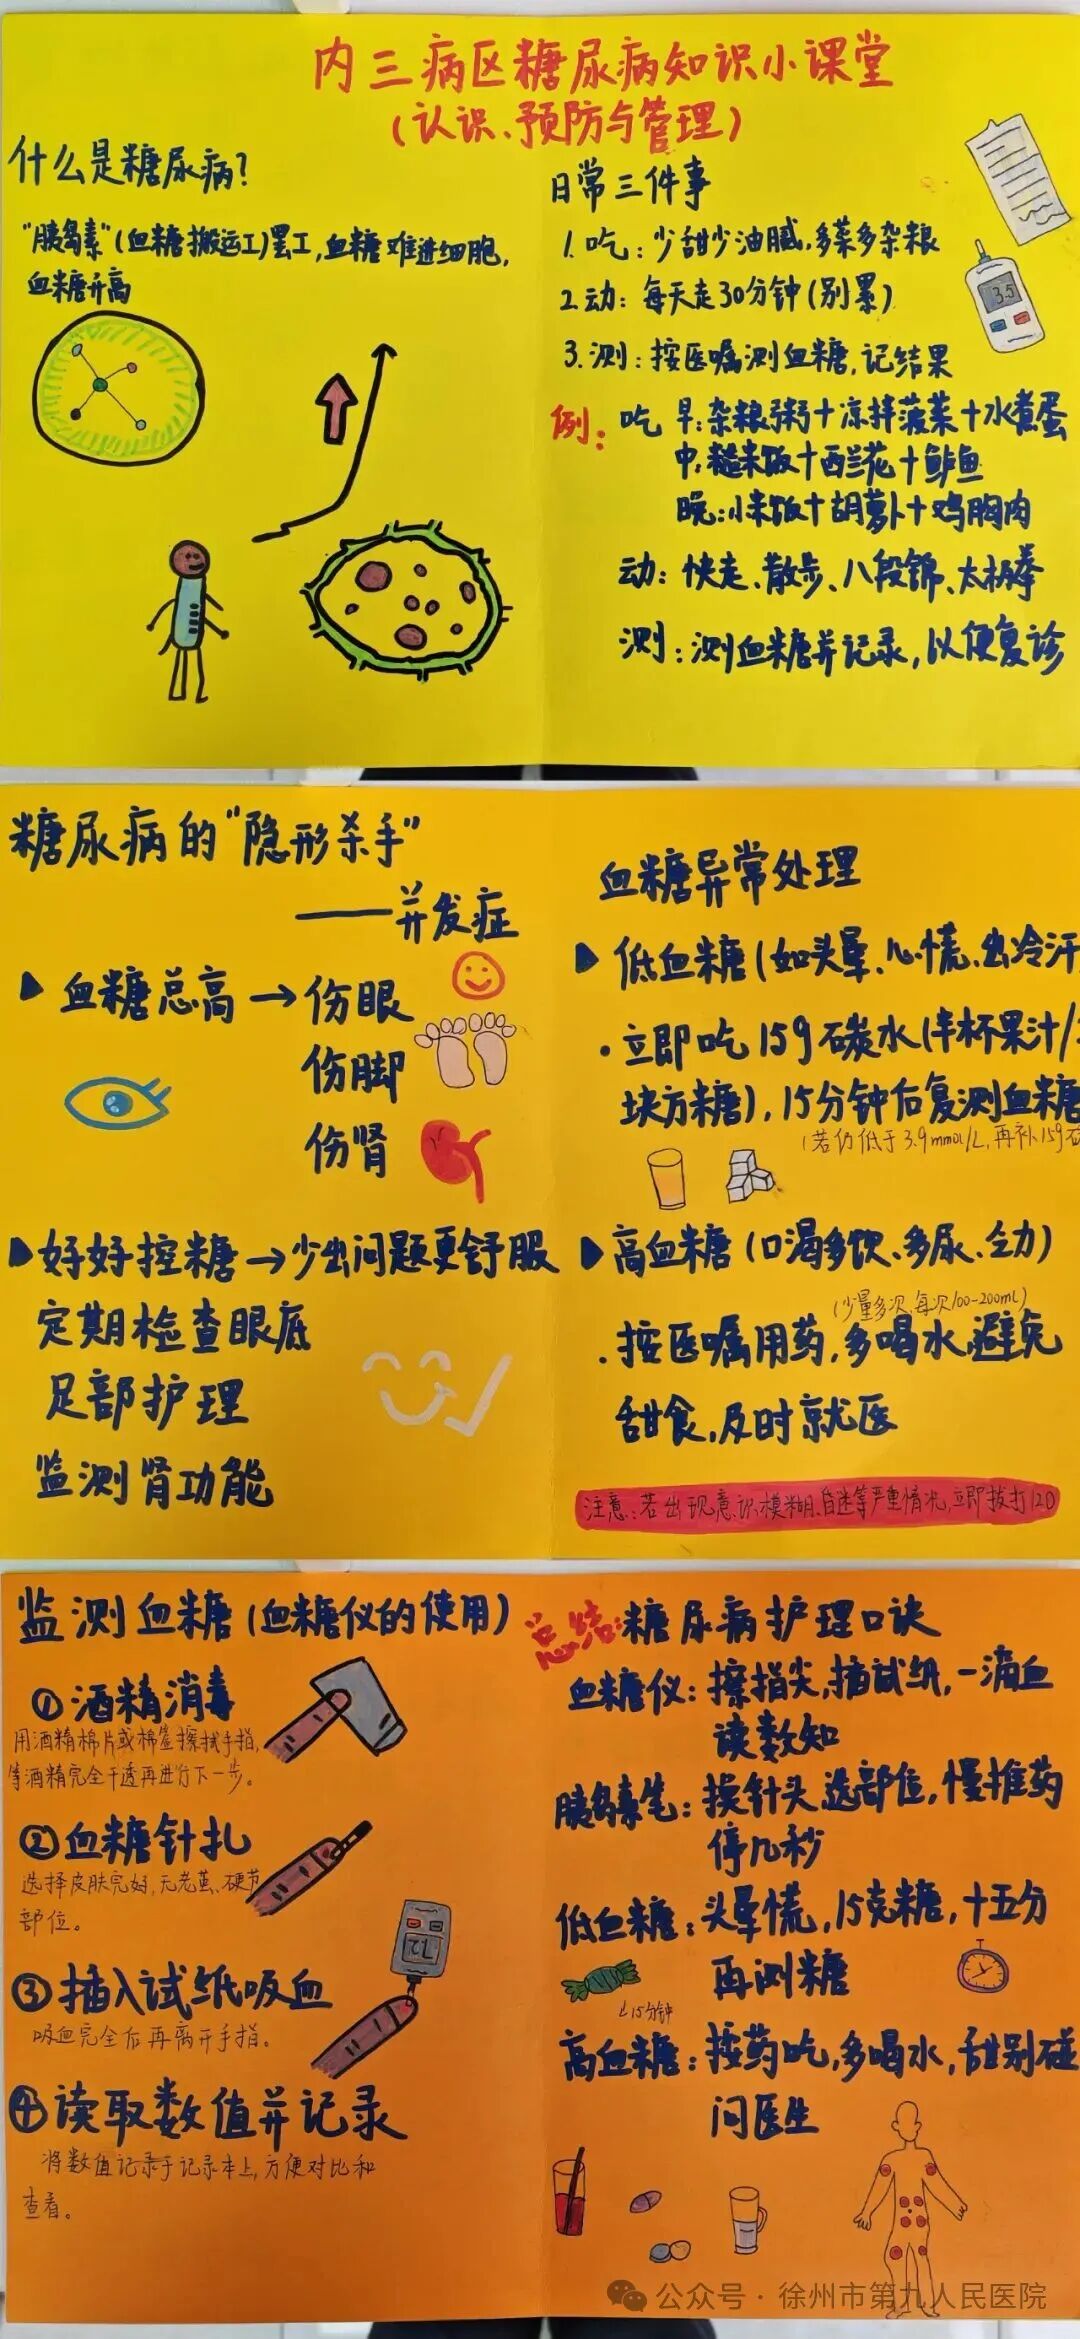 内三病区糖尿病知识小课堂
(认识、预防与管理)
什么是糖尿病?
"胰岛素"(血糖搬运工)罢工,血糖难进细胞,
血糖升高
日常三件事
1.吃:少甜少油腻,多菜多杂粮
2.动:每天走30分钟(别累)
3.测:按医嘱测血糖,记结果
3.5
例:吃 早:杂粮粥+凉拌菠菜+水煮蛋
中:糙米饭+西兰花+鲈鱼
晚:小米饭+胡萝卜+鸡胸肉
动:快走、散步、八段锦、太极拳
测:测血糖并记录,以便复诊
糖尿病的"隐形杀手"
——并发症
血糖总高→伤眼
伤脚
伤肾
好好控糖→少出问题更舒服
定期检查眼底
足部护理
监测肾功能
血糖异常处理
低血糖(如头晕、心慌、出冷汗
·立即吃15g碳水(半杯果汁/
块方糖),15分钟后复测血糖
(若仍低于3.9mmol/L,再补15g
高血糖(口渴多饮、多尿、乏力)
(少量多次,每次100-200mL)
·按医嘱用药,多喝水,避免
甜食,及时就医
注意:若出现意识模糊、昏迷等严重情况,立即拔打120
监测血糖(血糖仪的使用)
①酒精消毒
用酒精棉片或棉签擦拭手指,
等酒精完全干透再进行下一步。
②血糖针扎
选择皮肤完好,无老茧、硬节
部位。
③插入试纸吸血
吸血完全后再离开手指。
④读取数值并记录
将数值记录于记录本上,方便对比和
查看。
总结:糖尿病护理口诀
血糖仪:擦指尖,插试纸,一滴血
读数知
胰岛素笔:换针头,选部位,慢推药
停几秒
低血糖:头晕慌,15克糖,十五分
再测糖
15分钟
高血糖:按药吃,多喝水,甜别碰
问医生
公众号·徐州市第九人民医院